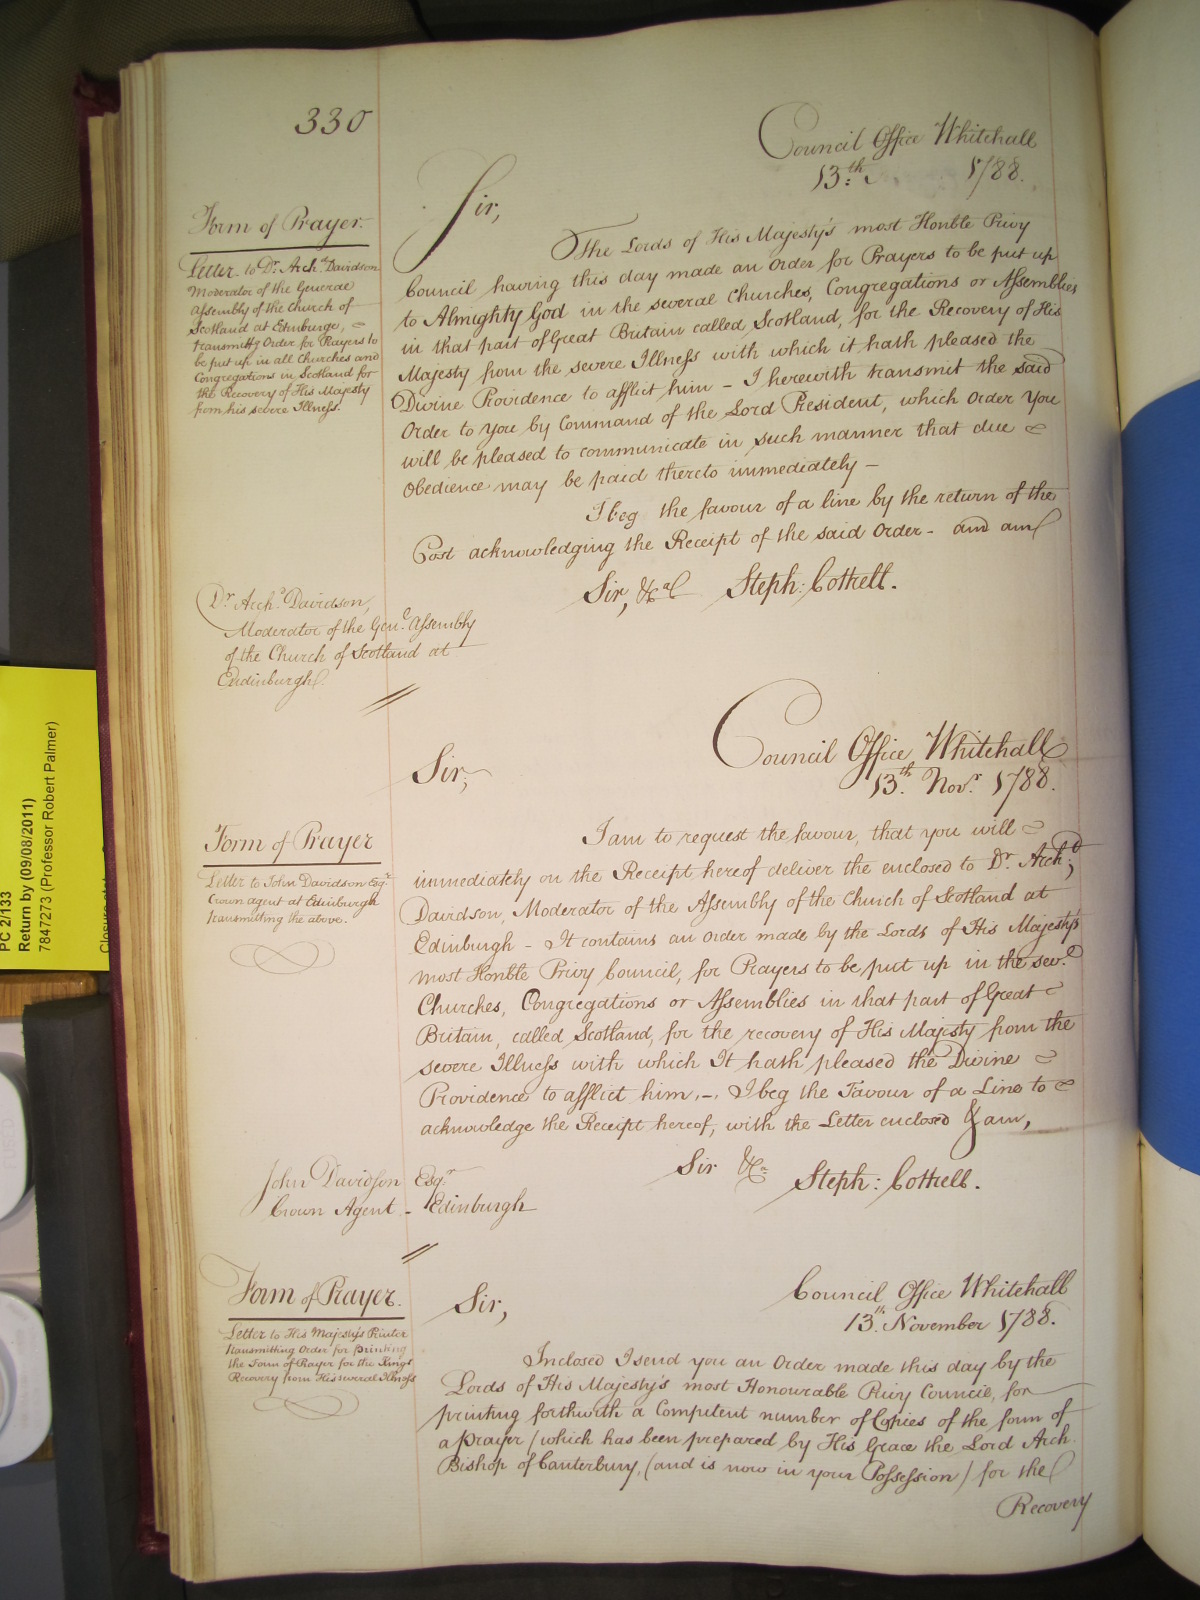 330
Council Office Whitehall
13th 1788.
Sir,
Form of Prayer.
Letter to Dr. Archd. Davidson
Moderator of the General
Assembly of the Church of
Scotland at Edinburge,
transmittg Order for Prayers to
be put up in all Churches and
Congregations in Scotland for
the Recovery of His Majesty
from his severe Illness.
The Lords of His Majesty's most Honble Privy
Council having this day made an Order for Prayers to be put up
to Almighty God in the several Churches, Congregations or Assemblies
in that part of Great Britain called Scotland, for the Recovery of His
Majesty from the severe Illness with which it hath pleased the
Divine Providence to afflict him – I herewith transmit the said
Order to you by Command of the Lord President, which Order You
will be pleased to communicate in such manner that due
Obedience may be paid thereto immediately –
I beg the favour of a line by the return of the
Post acknowledging the Receipt of the said Order – and am
Sir, &ca Steph: Cottrell.
Dr. Archd. Davidson,
Moderator of the Genl. Assembly
of the Church of Scotland at
Endinburgh.
Council Office Whitehall
13th. Novr. 1788.
Sir,
Form of Prayer
Letter to John Davidson Esqr
Crown agent at Edinburgh
transmitting the above.
I am to request the favour, that you will
immediately on the Receipt hereof deliver the enclosed to Dr. Archd;
Davidson, Moderator of the Assembly of the Church of Scotland at
Edinburgh – It contains an Order made by the Lords of His Majesty's
most Honble Privy Council, for Prayers to be put up in the sevl.
Churches, Congregations or Assemblies in that part of Great
Britain, called Scotland, for the recovery of His Majesty from the
severe Illness with which It hath pleased the Divine
Providence to afflict him. –. I beg the Favour of a Line to
acknowledge the Receipt hereof, with the Letter enclosed & am,
Sir &ca Steph: Cottrell.
John Davidson Esqr.
Crown Agent – Edinburgh
Council Office Whitehall
13th. November 1788.
Sir,
Form of Prayer.
Letter to His Majesty's Printer
transmitting Order for printing
the Form of Prayer for the Kings
Recovery from His several Illness
Inclosed I send you an Order made this day by the
Lords of His Majesty's most Honourable Privy Council, for
printing forthwith a Competent number of Copies of the form of
a prayer / which has been prepared by His Grace the Lord Arch
Bishop of Canterbury, (and is now in your Possession) for the
Recovery
PC 2/133
Return by (09/08/2011)
7847273 (Professor Robert Palmer)